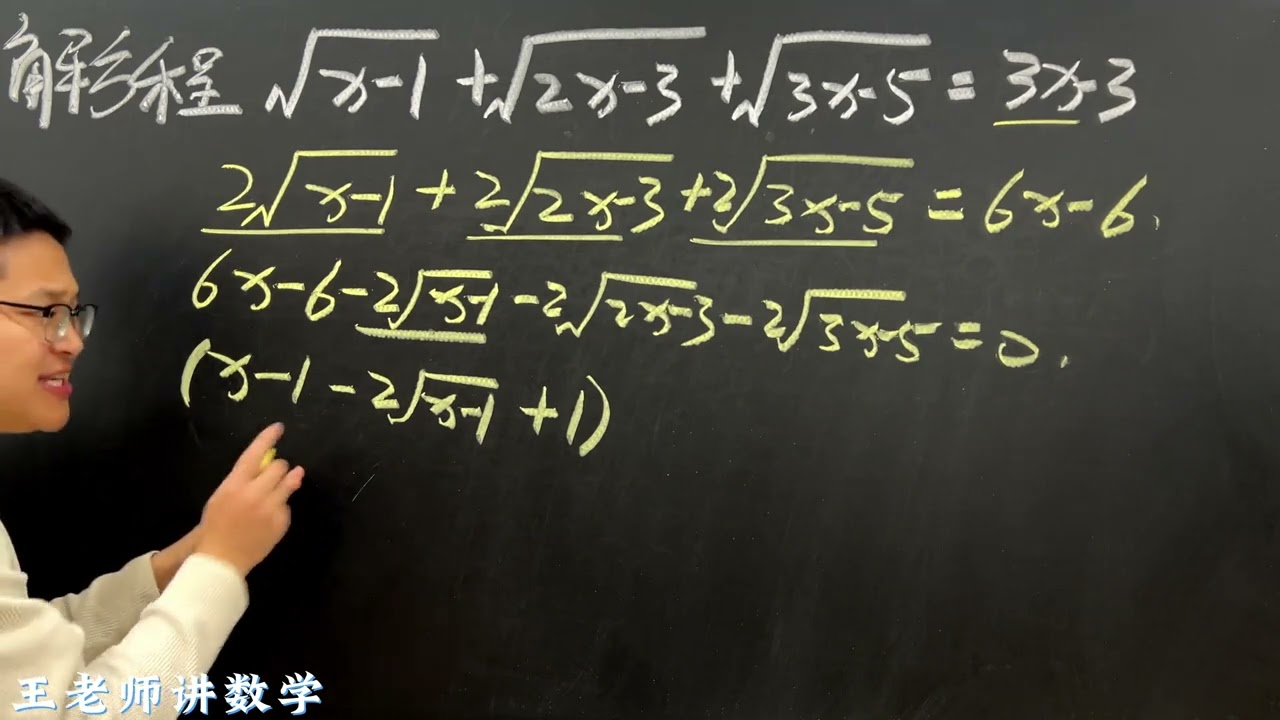 解方程 √(x-1) + √(2x-3) + √(3x-5) = 3x-3
2√(x-1) + 2√(2x-3) + 2√(3x-5) = 6x-6.
6x-6-2√(x-1) - 2√(2x-3) - 2√(3x-5) = 0.
(x-1 - 2√(x-1) + 1)
王老师讲数学